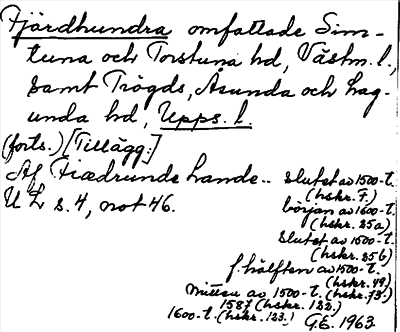 Fjärdhundra omfattade Sim-
tuna och Torstuna hd, Västm. l.,
samt Trögds, Åsunda och Lag-
unda hd, Upps. l.
(forts.) [Tillägg:]
Af Fiædrunde lande.. slutet av 1500-t.
(hskr. F.)
U L s. 4, not 46. början av 1600-t.
(hskr. 25a)
slutet av 1500-t.
(hskr. 25b)
f. hälften av 1500-t.
(hskr. 49)
mitten av 1500-t. (hskr. 73.)
1587 (hskr. 122.)
1600-t. (hskr. 123.) G.E. 1963.